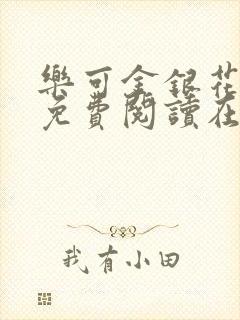 樂可金銀花
免費閱讀在
我有小田